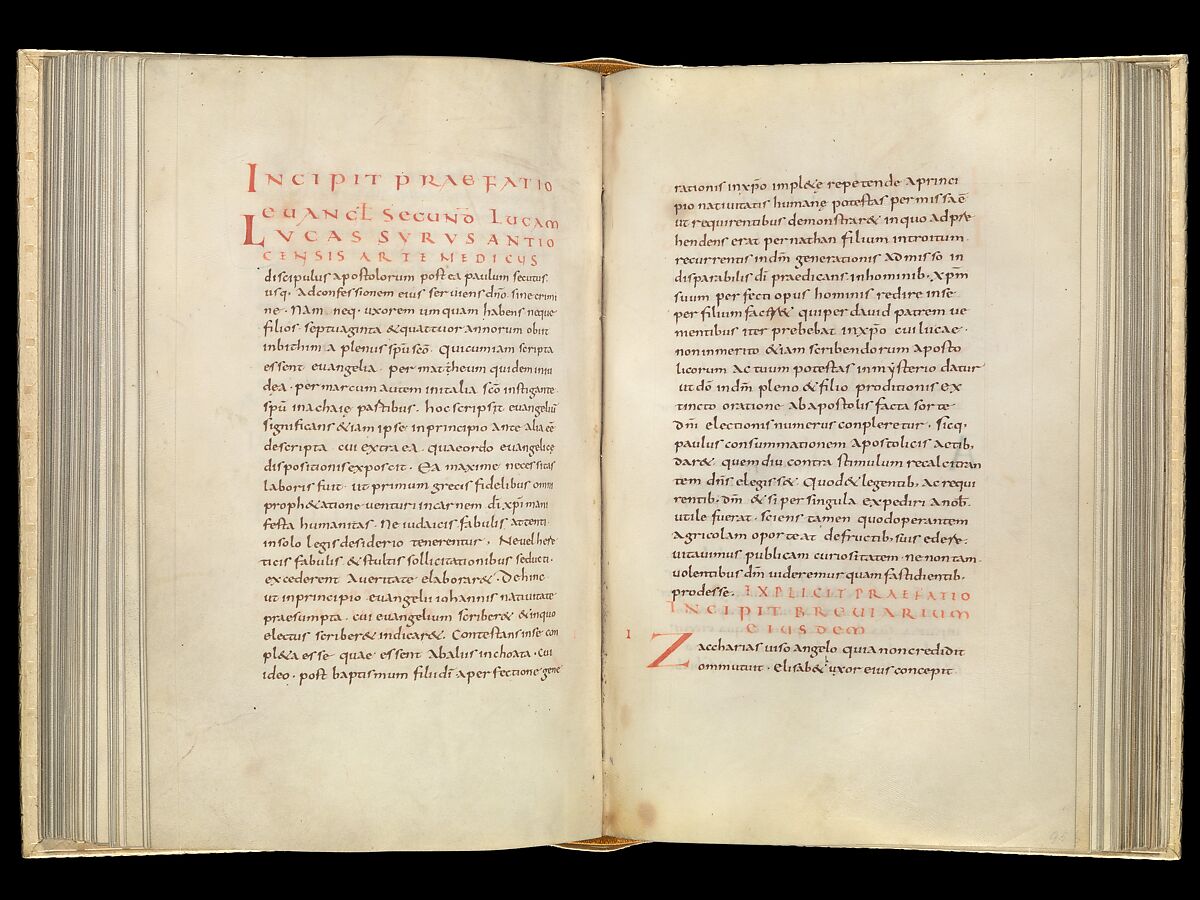 INCIPIT PRAEFATIO
EUANGL SECUND LUCAM
LUCAS SYRUS ANTIO
CENSIS ARTE MEDICUS
discipulus apostolorum postea paulum secutus.
usq, adconfessionem eius seruiens dn̄o sinecrimi
ne. Nam neq, uxorem umquam habens neque
filios. septuaginta &quattuor annorum obiit
inbithim a plenus sp̄u sc̄o. Quicumiam scripta
essent euangelia. per mattheum quidem iniu
dea. permarcum autem initalia sc̄o instigante
sp̄u inachaię partibus. hoc scripsit euangeliū
significans &iam ipse inprincipio ante alia eē
descripta. cui extra ea. quaeordo euangelicę
dispositionis exposcit. Ea maxime necessitas
laboris fuit. ut primum grecis fidelibus omni
proph&atione uenturi incarnem dī xp̄i mani
festa humanitas. Ne iudaicis fabulis attenti
insolo legis desiderio tenerentur, Neuel here
ticis fabulis &stultis sollicitationibus seducti.
excederent aueritate elaborar&. Dehinc
ut inprincipio euangelii iohannis natiuitate
praesumpta. cui euangelium scriber& &inquo
electus scriber& indicar&. Contestans inse con
pl&a esse quae essent abaliis inchoata. cui
ideo. post baptismum filii dī aperfectione gene
rationis inxp̄o impl&ę repetende aprinci
pio natiuitatis humanę potestas permissa ē
ut requirentibus demonstrar& inquo adpre
hendens erat pernathan filium introitum
recurrentis indm̄ generationis admisso in
disparabilis dī praedicans inhominib, xp̄m
suum perfecti opus hominis redire inse
per filium fac&& qui per dauid patrem ue
nientibus iter prebebat inxp̄o cui lucae.
noninmerito &iam scribendorum aposto
licorum actuum potestas inmysterio datur
ut dō indm̄ pleno &filio proditionis ex
tincto oratione abapostolis facta sorte
dn̄i electionis numerus conpleretur. sicq,
paulus consummationem apostolicis actib,
dar&. quem diu contra stimulum recalcitran
tem dn̄s elegiss& Quod&legentib, ac requi
rentib, dm̄ &si per singula expediri anob.
utile fuerat. sciens tamen quodoperantem
agricolam oporteat defructib, suis edere.
uitauimus publicam curiositatem. nenontam
uolentibus dm̄ uideremur quam fastidientib,
prodesse. EXPLICIT PRAEFATIO
INCIPIT BREUIARIUM
EIUSDEM
I Zaccharias uiso angelo quianoncredidit
ommutuit. elisab& uxor eius concepit.